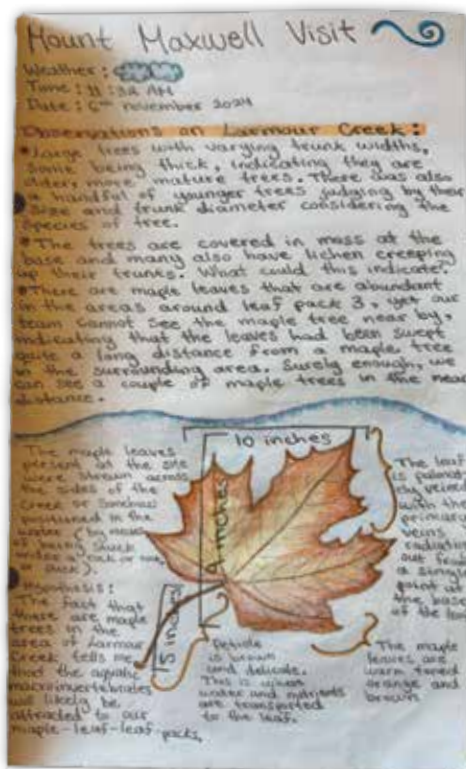 Mount Maxwell Visit
Weather:
Time: 11:32 AM
Date: 6th november 2024
Observations on Larmour Creek:
Large trees with varying trunk widths,
some being thick, indicating they are
older, more mature trees. There was also
a handful of younger trees judging by their
size and trunk diameter considering the
species of tree.
The trees are covered in mass at the
base and many also have lichen creeping
up their trunks. What could this indicate?
There are maple leaves that are abundant
in the areas around leaf pack 3, yet our
team cannot see the maple tree near by,
indicating that the leaves had been swept
quite a long distance from a maple tree
in the surrounding area. Surely enough, we
can see a couple of maple trees in the near
distance.
The maple leaves
present at the site
were strewn across
the sides of the
creek or somehow
positioned in the
water (by means
of being stuck
under a rock or
or stick).
Hypothesis:
The fact that
there are maple
trees in the
area of Larmour
Creek tells me
that the aquatic
macroinvertebrates
will likely be
attracted to our
maple-leaf-leaf-packs.
10 inches
9 inches
5 inches
Petiole
is brown
and delicate.
This is where
water and nutrients
are transported
to the leaf.
The leaf
is palmate
ly veined
with the
primary
veins
radiating
out from
a single
point at
the base
of the leaf
The maple
leaves are
warm toned
orange and
brown